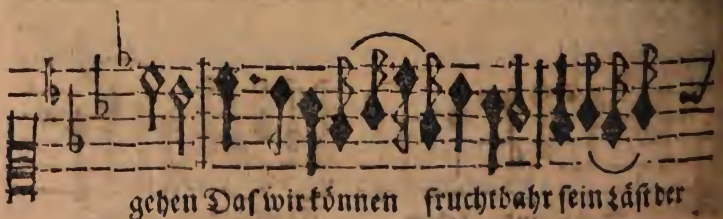 gehen Das wir können fruchtbahr sein Läst der